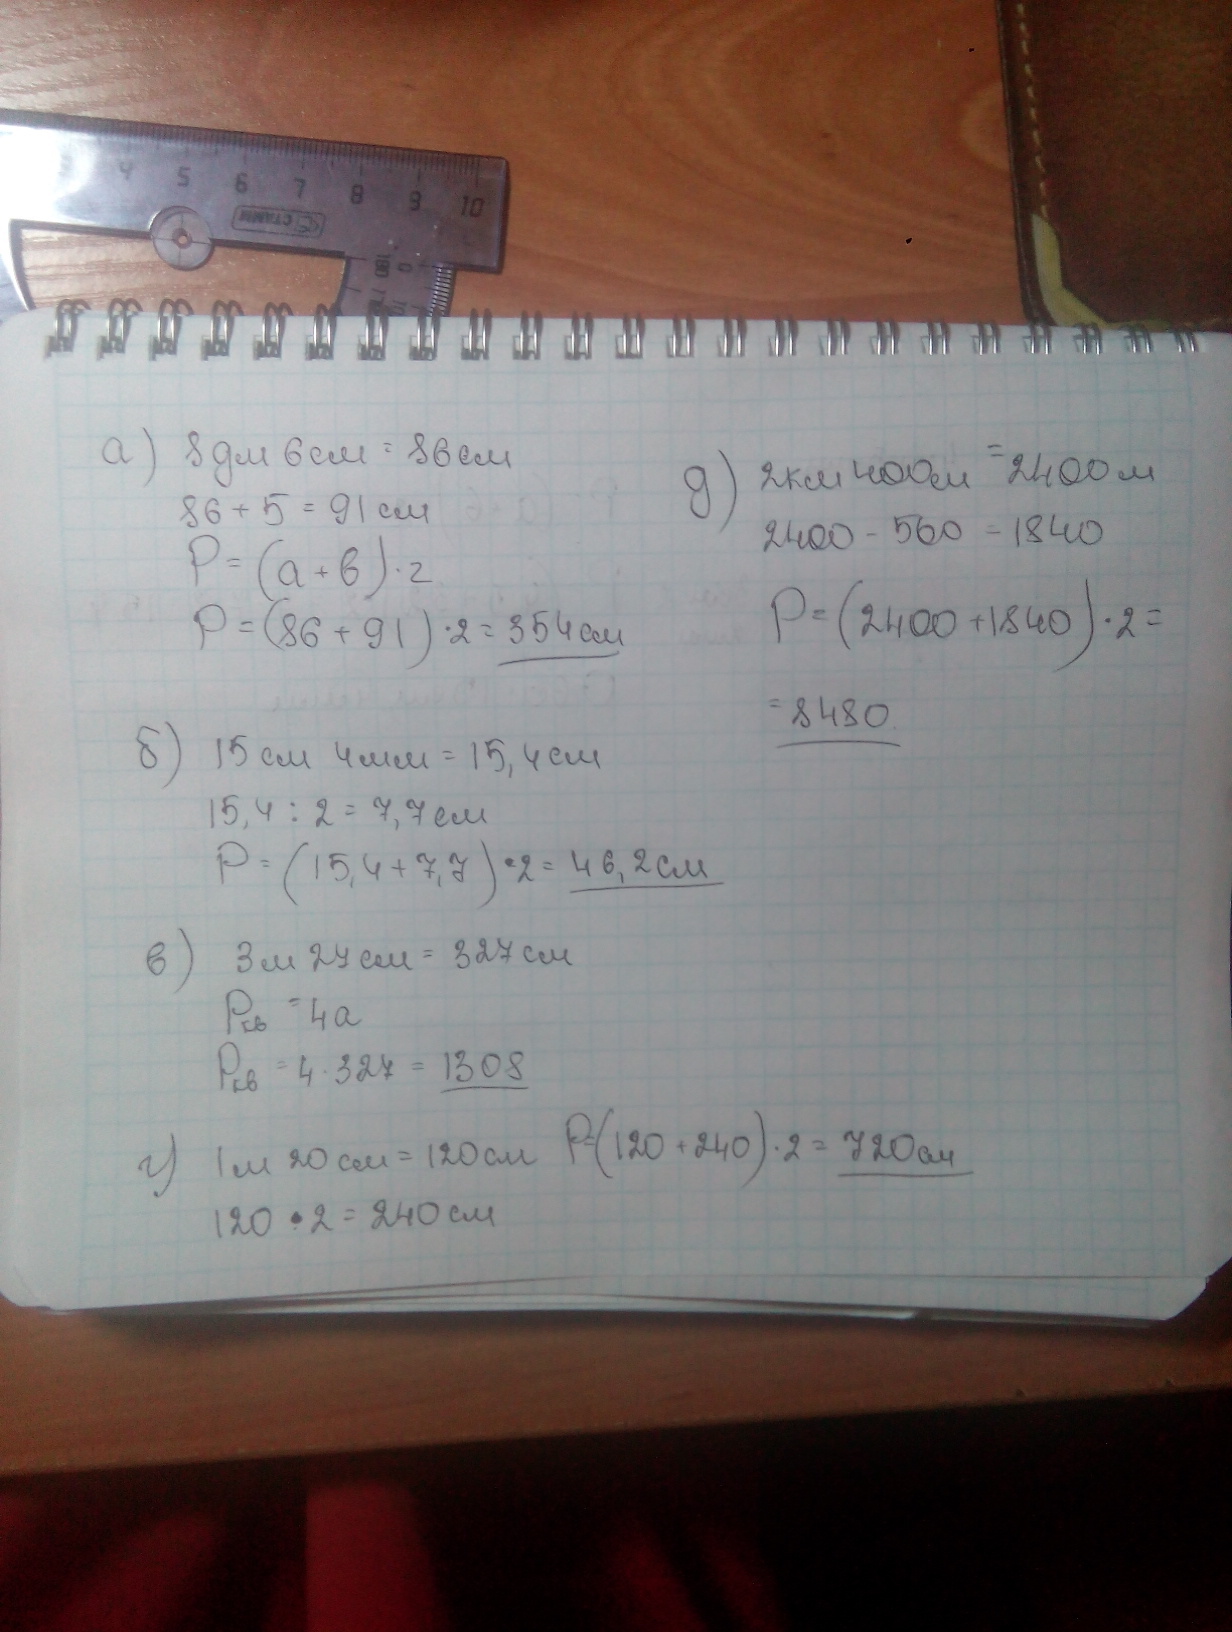 4 5 6 7 8 9 10
СТАММ
180 0
а) 8дм 6см = 86см
86 + 5 = 91 см
P = (а + в) · 2
P = (86 + 91) · 2 = 354 см
б) 15 см 4мм = 15,4 см
15,4 : 2 = 7,7 см
P = (15,4 + 7,7) · 2 = 46,2 см
в) 3 м 27 см = 327 см
Pкв = 4а
Pкв = 4 · 327 = 1308
г) 1м 20 см = 120 см P=(120 + 240) · 2 = 720 см
120 · 2 = 240 см
д) 2км 400м = 2400 м
2400 - 560 = 1840
P = (2400 + 1840) · 2 =
= 8480